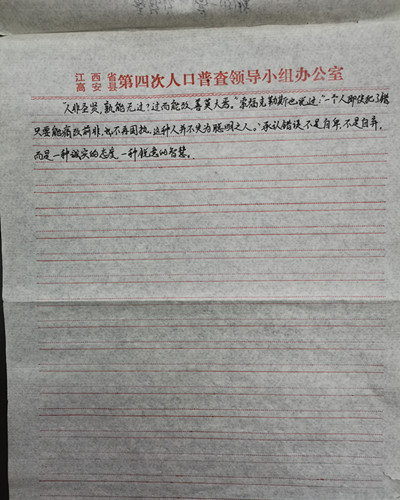 江西省高安县第四次人口普查领导小组办公室
"人非圣贤,孰能无过?过而能改,善莫大焉。"索福克勒斯也说过:"一个人即使犯了错
只要能痛改前非,也不再固执,这种人并不失为聪明之人。"承认错误,不是自卑,不是自弃,
而是一种诚实的态度,一种锐意的智慧。